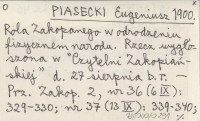 PIASECKI Eugeniusz 1900.
Rola Zakopanego w odrodzeniu
fizycznem narodu. Rzecz wygło-
szona w "Czytelni Zakopiań-
skiej" d. 27 sierpnia b.r. —
Prz. Zakop. 2, nr 36 (6 IX):
329-330; nr 37 (13 IX): 339-340;